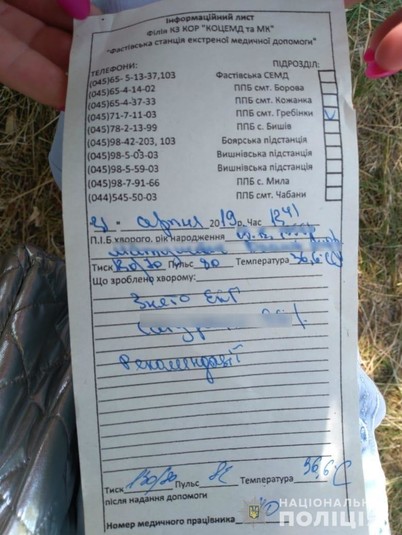 Інформаційний лист
Філія КЗ КОР "КОЦЕМД та МК"
"Фастівська станція екстреної медичної допомоги"
ТЕЛЕФОНИ: ПІДРОЗДІЛ:
(045)65- 5-13-37,103 Фастівська СЕМД
(045)65-4-14-02 ППБ смт. Борова
(045)65-4-37-33 ППБ смт. Кожанка
(045)71-7-11-03 ППБ смт. Гребінки
(045)78-2-13-99 ППБ с. Бишів
(045)98-42-203, 103 Боярська підстанція
(045)98-5-03-03 Вишнівська підстанція
(045)98-5-59-03 Вишнівська підстанція
(045)98-7-91-66 ППБ с. Мила
(044)545-50-03 ППБ смт. Чабани
31 серпня 2019р. Час
П.І.Б хворого, рік народження
Тиск Пульс 80 Температура 36,6
Що зроблено хворому:
Знято ЕКГ
Рекомендації
Тиск Пульс Температура 36,6°C
після надання допомоги
Номер медичного працівника
НАЦІОНАЛЬНА
ПОЛІЦІЯ